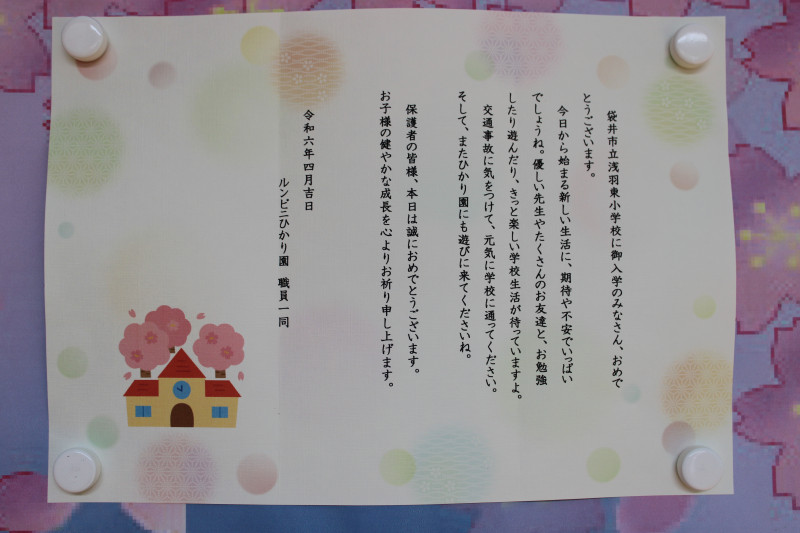 袋井市立浅羽東小学校に御入学のみなさん、おめで
とうございます。
今日から始まる新しい生活に、期待や不安でいっぱい
でしょうね。優しい先生やたくさんのお友達と、お勉強
したり遊んだり、きっと楽しい学校生活が待っていますよ。
交通事故に気をつけて、元気に学校に通ってください。
そして、またひかり園にも遊びに来てくださいね。
保護者の皆様、本日は誠におめでとうございます。
お子様の健やかな成長を心よりお祈り申し上げます。
令和六年四月吉日
ルンビニひかり園 職員一同